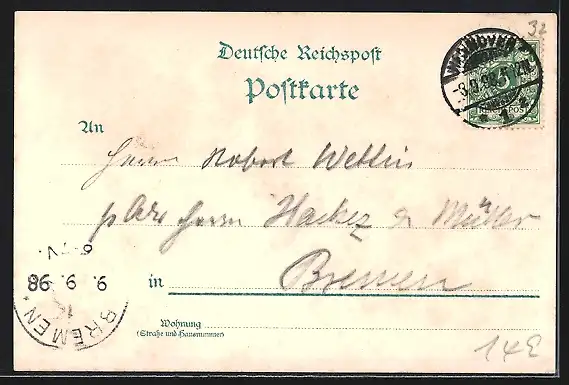 32
Deutsche Reichspost
Postkarte
HANNOVER
-8.9.98
* 1 z
REICHSPOST
An
Herrn Robert Wettlin
Herrn Hackez & Müller
in Bremen
9. 9. 98
BREMEN.
Wohnung
(Straße und Hausnummer)
14E